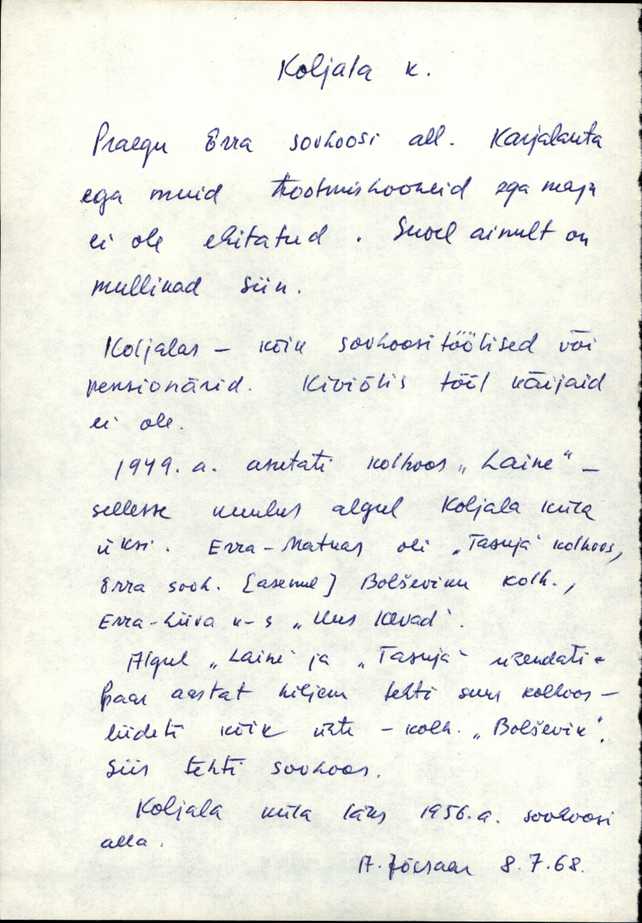 Koljala k.
Praegu Erra sovhoosi all. Karjalauta
ega muid tootmishooneid ega maju
ei ole ehitatud. Suvel ainult on
mullikad siin.
Koljalas – kõik sovhoosi töölised või
pensionärid. Kiviõlis tööl käijaid
ei ole.
1949. a. asutati kolhoos „Laine" –
sellesse kuulus algul Koljala küla
üksi. Erra-Matkas oli „Tasuja" kolhoos,
Erra sovh. [asemel] Bolševiku kolh.,
Erra-Liiva k-s „Uus Kevad".
Algul „Laine" ja „Tasuja" ühendati.
Paar aastat hiljem tehti suur kolhoos –
liideti kõik ühte – kolh. „Bolševik".
Siis tehti sovhoos.
Koljala küla läks 1956. a. sovhoosi
alla.
A. 8.7.68.